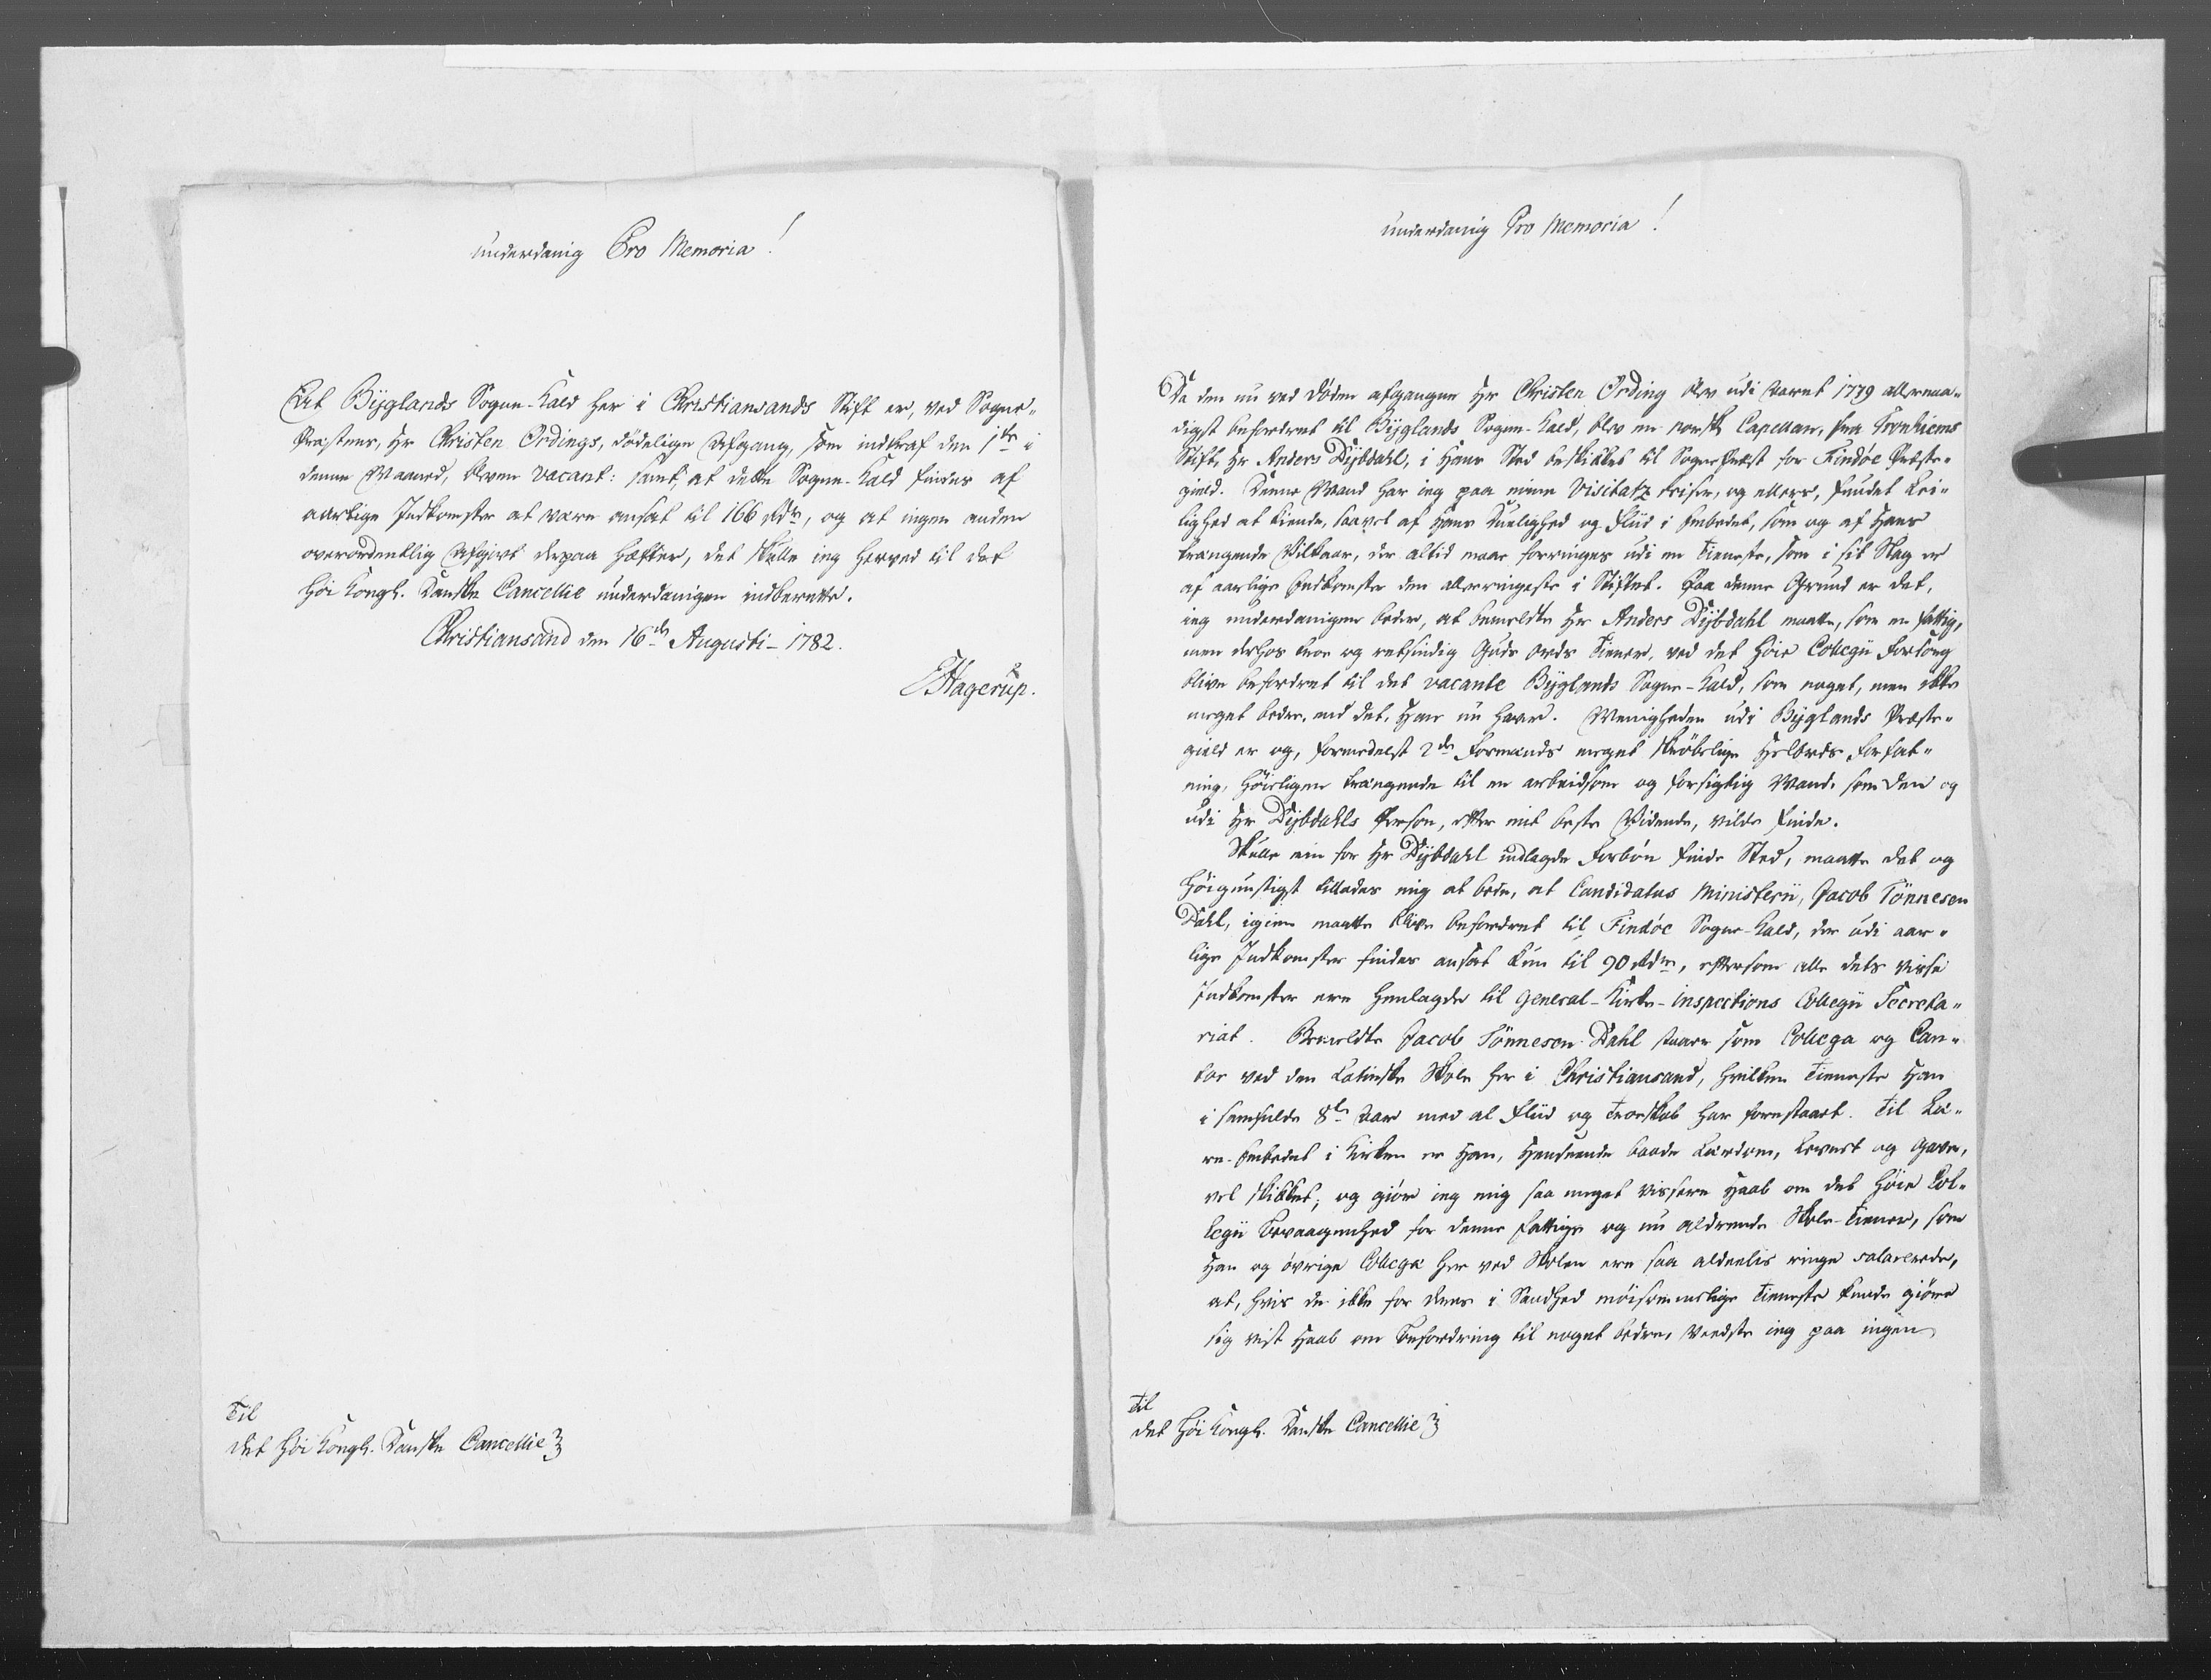 underdanig Pro Memoria!
At Byglands Sogne-Kald her i Christiansands Stift er, ved Sogne-
Præstens, Hr Christen Ordings, dödelige Afgang, som indtraf den 1ste i
denne Maaned, bleven vacant: samt, at dette Sogne-Kald findes af
aarlige Indkomster at være ansat til 166 Rdr, og at ingen anden
overordentlig Afgivt derpaa hæfter, det skulle ieg herved til det
Höi Kongl. Danske Cancellie underdanigen indberette.
Christiansand den 16de Augusti-1782.
EHagerup.
Til
det Höi Kongl. Danske Cancellie
underdanig Pro Memoria!
Da den nu ved döden afgangne Hr Christen Ording blev udi Aaret 1779 allernaa-
digst befordret til Byglands Sogne-Kald, blev en norsk Capellan, fra Tronhiems
Stift, Hr Anders Dybdahl, i Hans Sted beskikket til SognePræst for Findöe Præste-
gield. Denne Mand har ieg paa mine Visitatz reiser, og ellers, fundet Lei-
lighed at kiende, saavel af Hans Duelighed og Fliid i Embedet, som og af Hans
trængende Vilkaar, der altid maae forringes udi en Tieneste, som i sit Slag er
af aarlige Indkomster den allerringeste i Stiftet. Paa denne Grund er det,
ieg underdanigen beder, at bemeldte Hr Anders Dybdahl maatte, som en fattig,
men derhos troe og retsindig Guds Ords Tiener, ved det Höie Collegii Forsorg
blive befordret til det vacante Byglands Sogne-Kald, som noget, men ikke
meget bedre, end det, Han nu haver. Menigheden udi Byglands Præste-
gield er og, formedelst 2de Formænds meget skröbelige Helbreds-Forfat-
ning, höiligen trængende til en arbeidsom og forsigtig Mand, som den og
udi Hr Dybdahls Person, efter mit beste Vidende, vilde finde.
Skulle min for Hr Dybdahl indlagde Forbön finde Sted, maatte det og
höigunstigst tillades mig at bede, at Candidatus Ministerii, Jacob Tönnesen
Dahl, igien maatte blive befordret til Findöe Sogne-Kald, der udi aar-
lige Indkomster findes ansat kun til 90 Rdr, eftersom alle dets visse
Indkomster ere henlagde til General-Kirke-Inspections Collegii Secreta-
riat. Bemeldte Jacob Tönnesen Dahl staaer som Collega og Can-
tor ved den Latinske Skole her i Christiansand, hvilken Tieneste Han
i samfulde 8te Aar med al Fliid og Troeskab har forestaaet. Til Læ-
re-Embedet i Kirken er Han, henseende baade Lærdom, Levnet og Gaver,
vel skikket; og giör ieg mig saa meget vissere Haab om det Höie Col-
legii Bevaagenhed for denne fattige og nu aldrende Skole-Tiener, som
Han og övrige Collegæ her ved Skolen ere saa aldeelis ringe salarerede,
at, hvis de ikke for deres i Sandhed möisommelige Tieneste kunde giöre
sig vist Haab om Befordring til noget bedre, veedste ieg paa ingen
Til
det Höi Kongl. Danske Cancellie